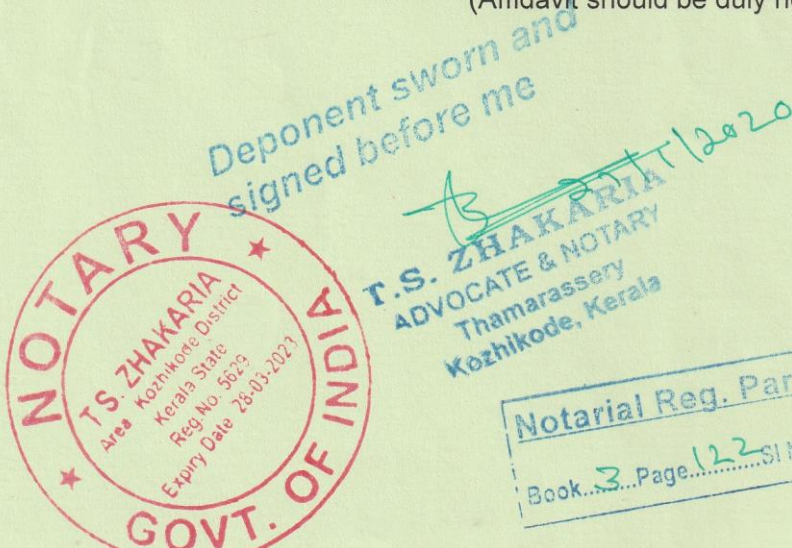 (Affidavit should be duly
Deponent sworn and
signed before me
/2020
T.S. ZHAKARIA
ADVOCATE & NOTARY
Thamarassery
Kozhikode, Kerala
NOTARY
T.S. ZHAKARIA
Area Kozhikode District
Kerala State
Reg.No. 5629
Expiry Date 28-03-2023
GOVT. OF INDIA
Notarial Reg.
Book...3...Page...122...Sl